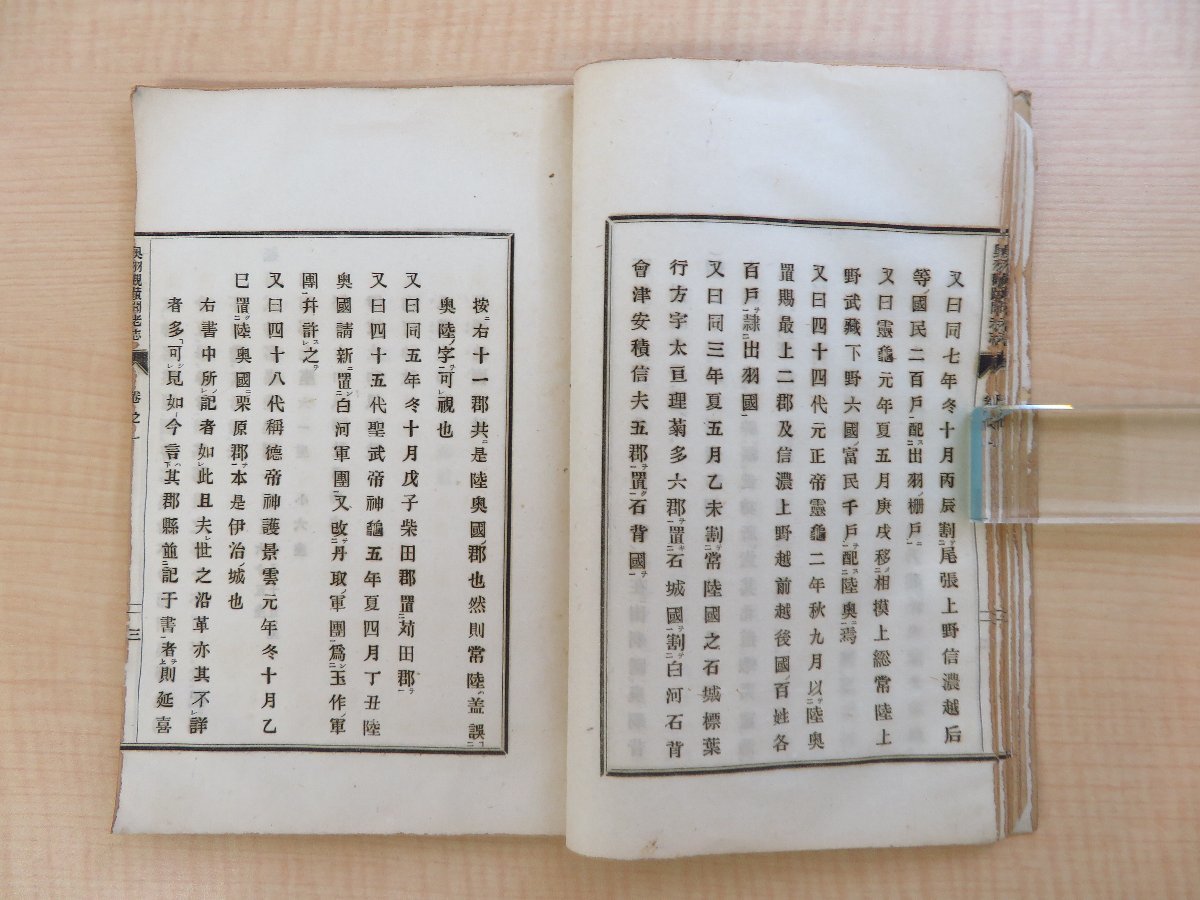 又曰同七年冬十月丙辰割尾張上野信濃越后
等國民二百戶配出羽柵戶
又曰靈龜元年夏五月庚戌移相摸上總常陸上
野武藏下野六國富民千戶配陸奧焉
又曰四十四代元正帝靈龜二年秋九月以陸奧
置賜最上二郡及信濃上野越前越後國百姓各
百戶隷出羽國
又曰同三年夏五月乙未割常陸國之石城標葉
行方宇太亘理菊多六郡置石城國割白河石背
會津安積信夫五郡置石背國
按右十一郡共是陸奧國郡也然則常陸盖誤
奧陸字可視也
又曰同五年冬十月戊子柴田郡置苅田郡
又曰四十五代聖武帝神龜五年夏四月丁丑陸
奧國請新置白河軍團又改丹取軍團爲玉作軍
團幷許之
又曰四十八代稱德帝神護景雲元年冬十月乙
巳置陸奧國栗原郡本是伊治城也
右書中所記者如此且夫世之沿革亦其不詳
者多可見如今言其郡縣並記于書者則延喜
奧羽觀蹟聞老志 卷之一 三